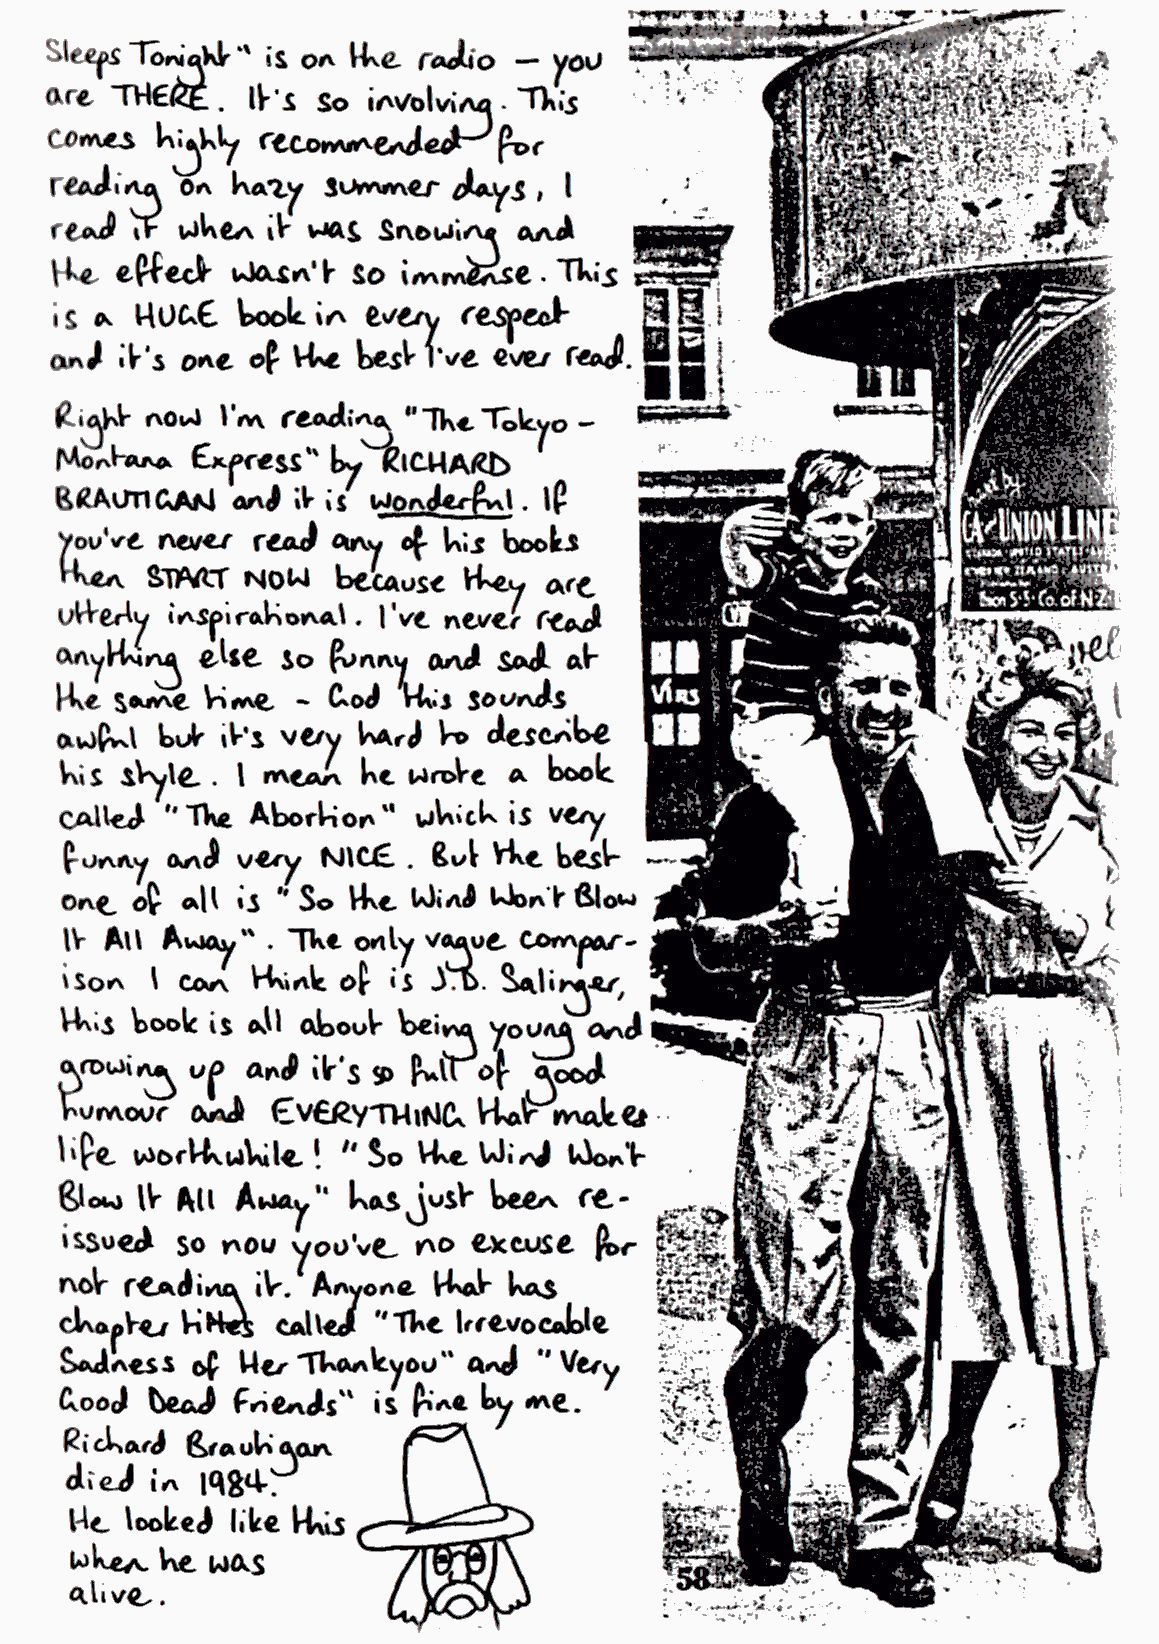 Sleeps Tonight" is on the radio – you
are THERE. It's so involving. This
comes highly recommended for
reading on hazy summer days, I
read it when it was snowing and
the effect wasn't so immense. This
is a HUGE book in every respect
and it's one of the best I've ever read.
Right now I'm reading "The Tokyo –
Montana Express" by RICHARD
BRAUTIGAN and it is wonderful. If
you've never read any of his books
then START NOW because they are
utterly inspirational. I've never read
anything else so funny and sad at
the same time – God this sounds
awful but it's very hard to describe
his style. I mean he wrote a book
called "The Abortion" which is very
funny and very NICE. But the best
one of all is "So the Wind Won't Blow
It All Away". The only vague compar-
ison I can think of is J.D. Salinger,
this book is all about being young and
growing up and it's so full of good
humour and EVERYTHING that makes
life worthwhile! "So the Wind Won't
Blow It All Away" has just been re-
issued so now you've no excuse for
not reading it. Anyone that has
chapter titles called "The Irrevocable
Sadness of Her Thankyou" and "Very
Good Dead Friends" is fine by me.
Richard Brautigan
died in 1984.
He looked like this
when he was
alive.
by
UNION LINE
S.S. Co. of N.Z.
VIRS
58